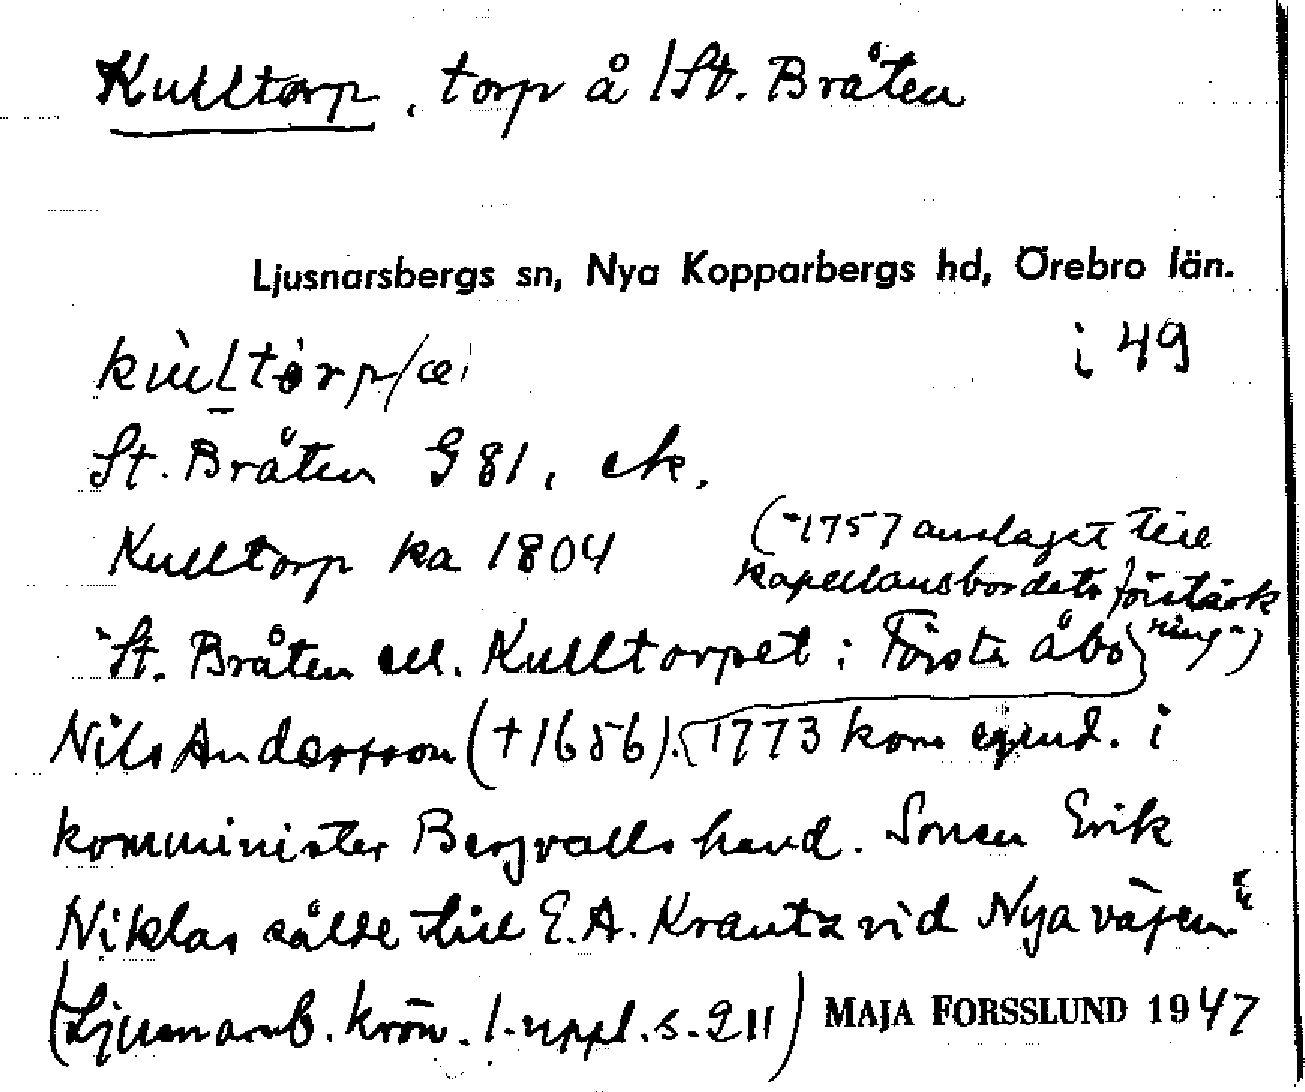 Kulltorp, torp å St. Bråten
Ljusnarsbergs sn, Nya Kopparbergs hd, Örebro län.
i 49
St. Bråten G 81, ek.
Kulltorp ka 1804
("1757 anslaget till
kapellansbordets förstärk
ning")
"St. Bråten ell. Kulltorpet: Förste åbo
Nils Andersson († 1656). 1773 kom egend. i
komminister Bergvalls hand. Sonen Erik
Niklas sålde till E. A. Krantz vid Nya vägen"
(Ljusnarsb. krön. 1. uppl. s. 211)
MAJA FORSSLUND 1947